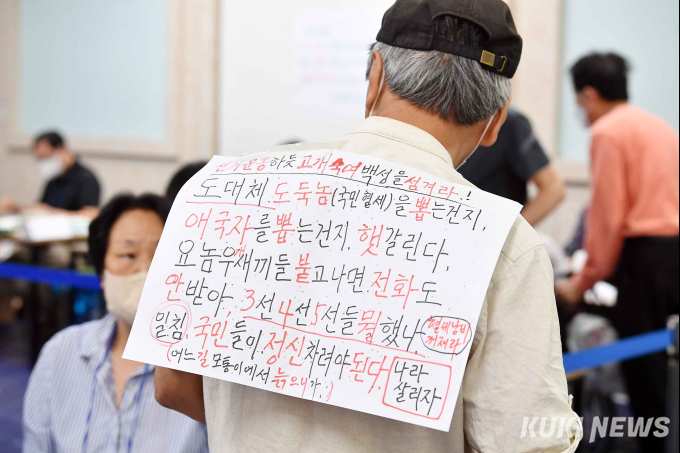 선거운동하듯 고개숙여 백성을 섬겨라~!
도대체 도둑놈(국민혈세)을 뽑는건지.
애국자를 뽑는건지. 햇갈린다.
요놈우새끼들 붙고나면 전화도
안받아. 3선4선5선들 뭘했나.
혈세낭비 꺼져라
일침. 국민들이! 정신차려야 된다.
(어느길 모퉁이에서 늙으니가.)
나라
살리자
KUKI NEWS